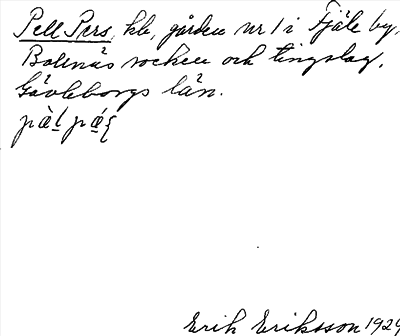 Pell Pers, hb, gården nr 1 i Fjäle by,
Bollnäs socken och tingslag,
Gävleborgs län.
pàl pǽ
Erik Eriksson 1924